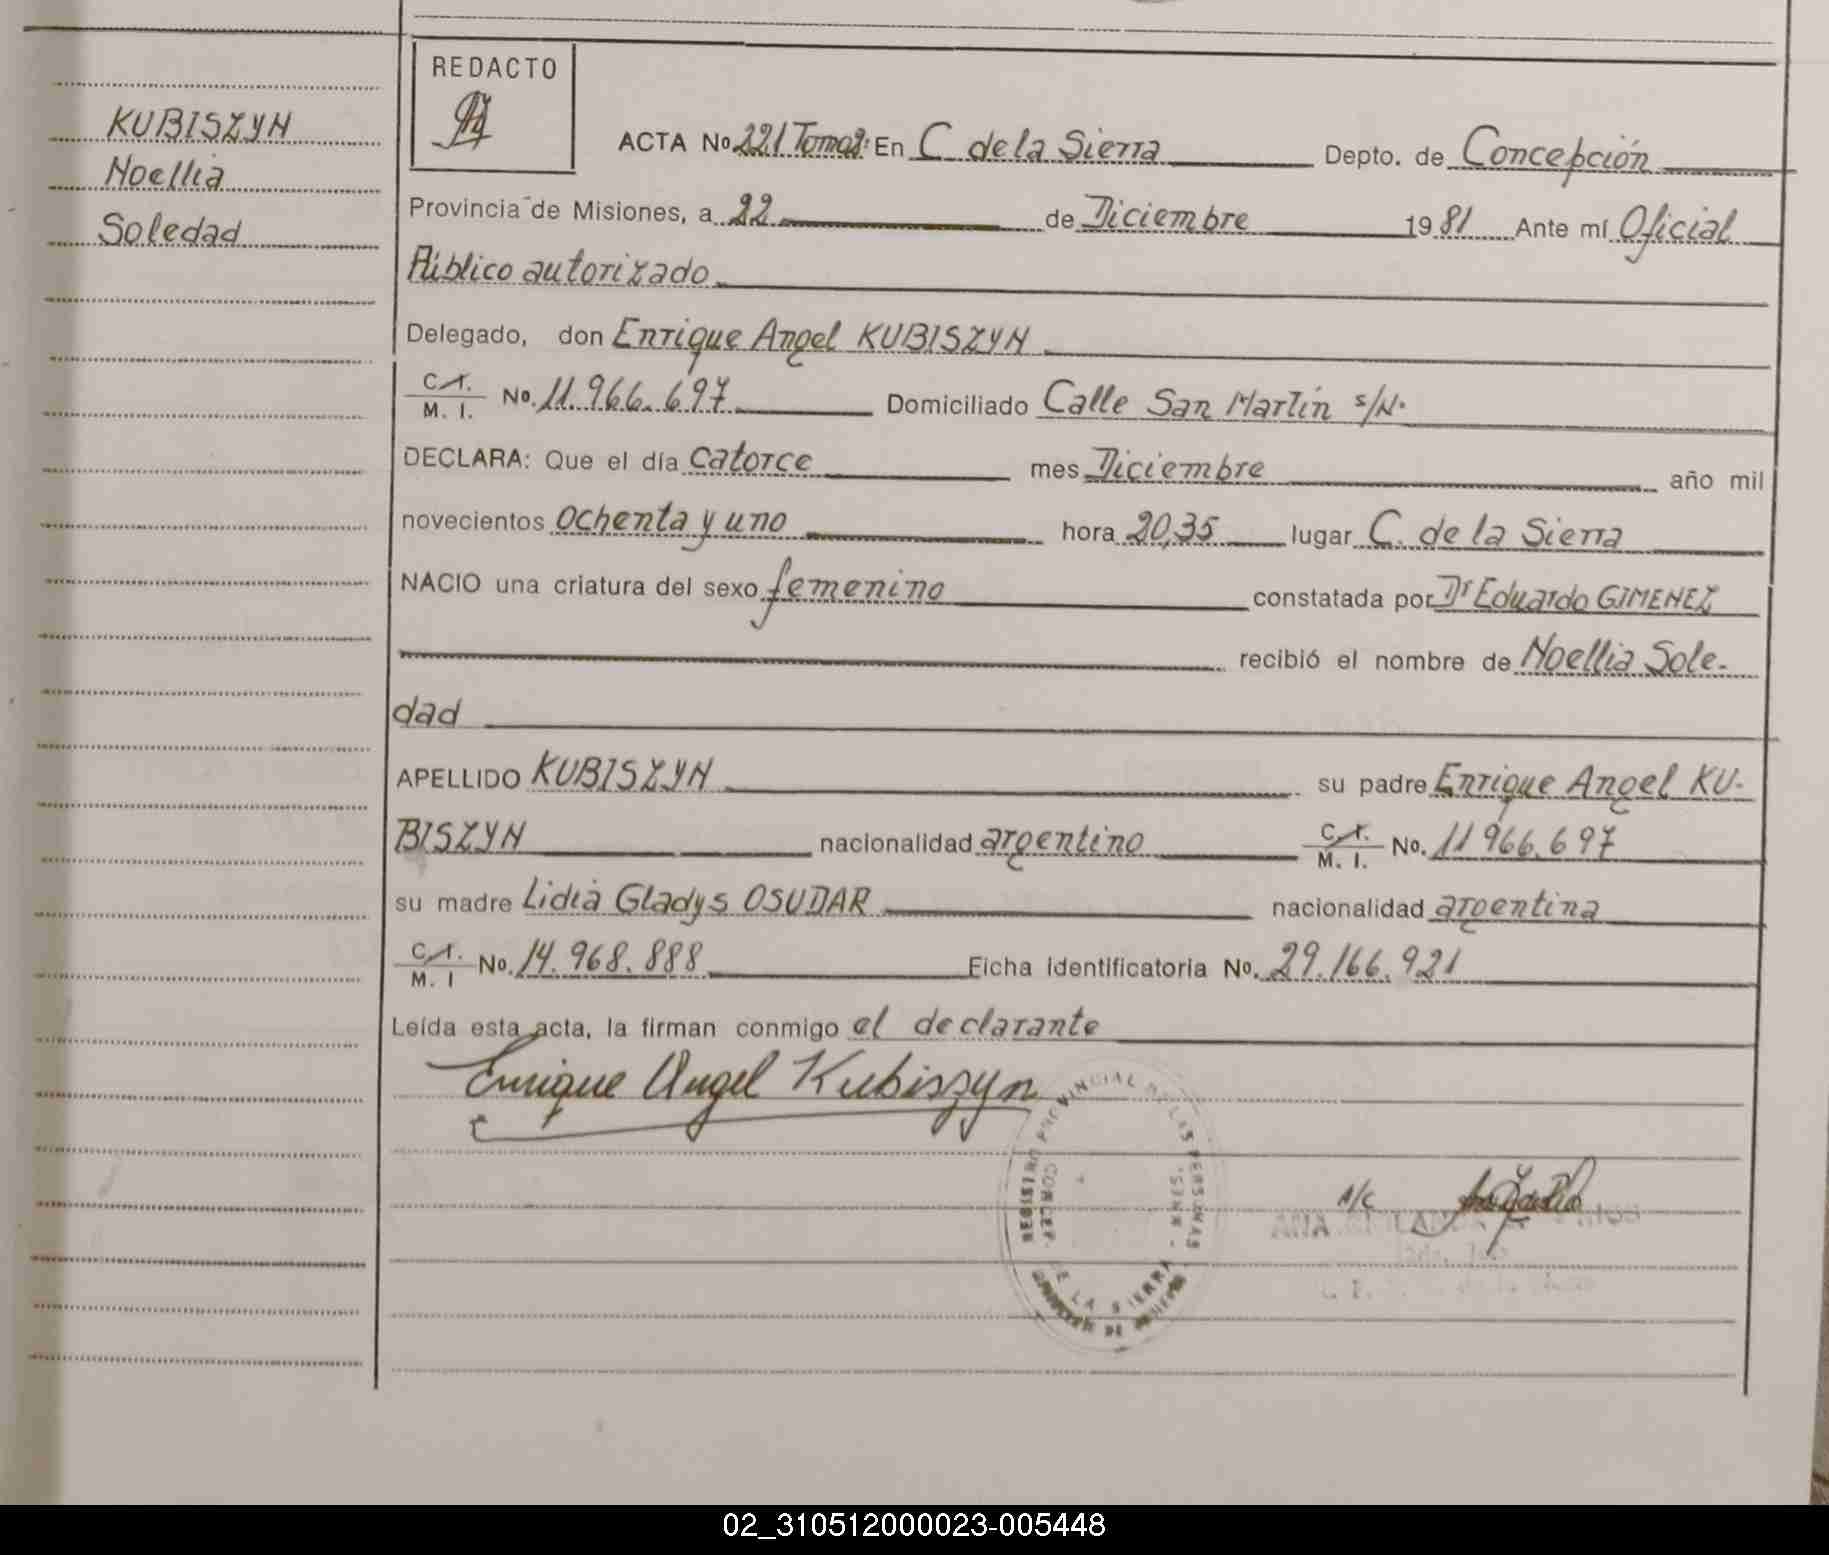 KUBISZYN
Noellia
Soledad
REDACTO
ACTA No 221 Tomo 2: En C. de la Sierra Depto. de Concepción
Provincia de Misiones, a 22 de Diciembre 1981 Ante mí Oficial
Público autorizado
Delegado, don Enrique Angel KUBISZYN
C.I. M. I. No. 11.966.697 Domiciliado Calle San Martín s/N.
DECLARA: Que el día catorce mes Diciembre año mil
novecientos ochenta y uno hora 20,35 lugar C. de la Sierra
NACIO una criatura del sexo femenino constatada por Dr Eduardo GIMENEZ
recibió el nombre de Noellia Sole-
dad
APELLIDO KUBISZYN su padre Enrique Angel KU-
BISZYN nacionalidad argentino C.I. M. I. No. 11 966.697
su madre Lidia Gladys OSUDAR nacionalidad argentina
C.I. M. I No. 14.968.888 Ficha identificatoria No. 29.166.921
Leída esta acta, la firman conmigo el declarante
Enrique Angel Kubiszyn
REGISTRO PROVINCIAL DE LAS PERSONAS
CONCEP. DE LA SIERRA
A/C
02_310512000023-005448